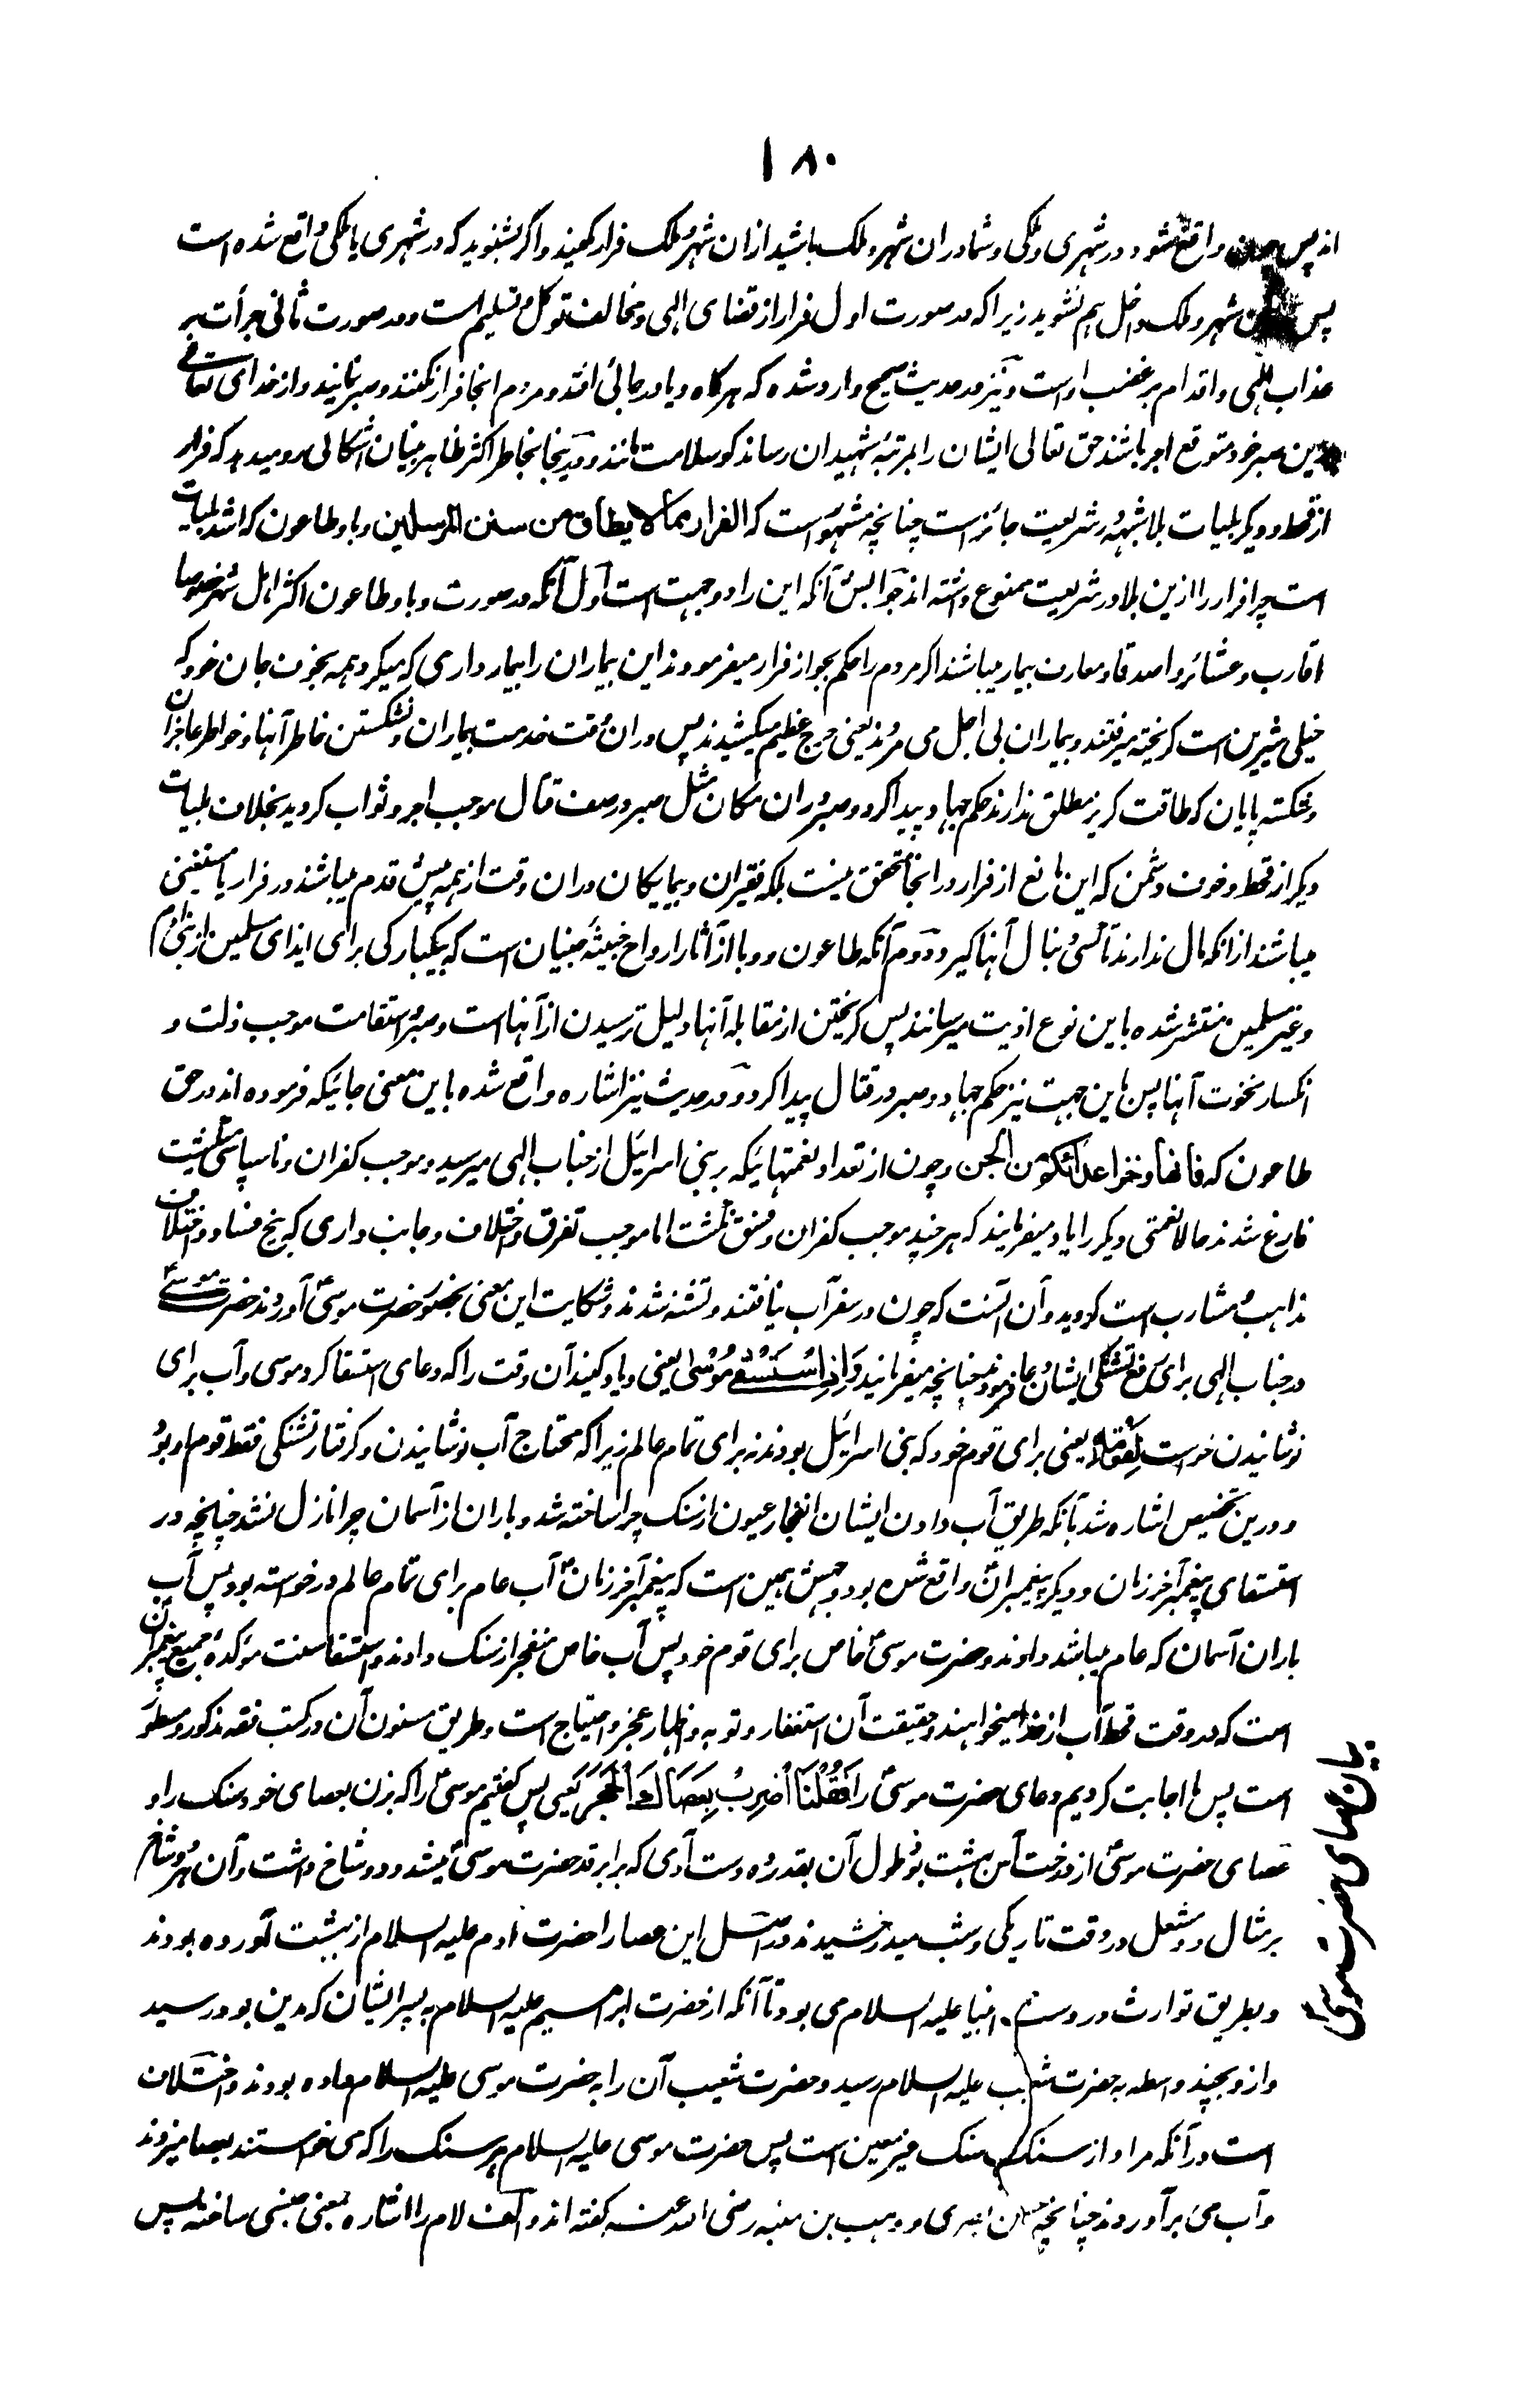 ۱۸۰
اند پس چون واقع شود در شهری و ملکی و شما دران شهر و ملک باشید ازان شهر و ملک فرار مکنید و اگر بشنوید که در شهری یا ملکی واقع شده است
پس دران شهر و ملک داخل هم نشوید زیرا که در صورت اول فرار از قضای الهی و مخالفت توکل و تسلیم است و در صورت ثانی جرأت بر
عذاب الهی و اقدام بر غضب اوست و نیز در حدیث صحیح وارد شده که هرگاه وبا در جائی افتد و مردم انجا فرار نکنند و صبر نمایند و از خدای تعالی
درین صبر خود متوقع اجر باشند حق تعالی ایشان را بمرتبۀ شهیدان رساند گو سلامت مانند و درینجا بخاطر اکثر ظاهر بینان اشکالی رو میدهد که فرار
از قحط و دیگر بلیات بلا شبهه در شریعت جائز است چنانچه مشهور است که الفرار مما لا یطاق من سنن المرسلین وبا و طاعون که اشد بلیات
است چرا فرار را ازین بلا در شریعت ممنوع داشته اند جوابش آنکه این را دو جهت است اول آنکه در صورت وبا و طاعون اکثر اهل شهر خصوصا
اقارب و عشائر و اصدقا و معارف بیمار میباشند اگر مردم را حکم بجواز فرار میفرمودند این بیماران را بیمار داری که میکرد همه بخوف جان خود که
خیلی شیرین است گریخته میرفتند و بیماران بی اجل می مردند یعنی حرج عظیم میکشیدند پس دران وقت خدمت بیماران و نشکستن خاطر آنها و خواطر عاجزان
و شکسته پایان که طاقت گریز مطلق ندارند حکم جهاد پیدا کرد و صبر دران مکان مثل صبر در صف قتال موجب اجر و ثواب گردید بخلاف بلیات
دیگر از قحط و خوف دشمن که این مانع از فرار در انجا متحقق نیست بلکه فقیران و بیمایگان دران وقت از همه پیش قدم میباشند در فرار یا مستغنی
میباشند ازانکه مال ندارند تا کسی دنبال آنها گیرد و دوم آنکه طاعون و وبا از آثار ارواح خبیثۀ جنیان است که بیکبارگی برای ایذای مسلمین از بنی آدم
و غیر مسلمین منتشر شده باین نوع اذیت میرسانند پس گریختن از مقابله آنها دلیل ترسیدن از آنها است و صبر و استقامت موجب ذلت و
انکسار نخوت آنها پس باین جهت نیز حکم جهاد و صبر در قتال پیدا کرد و در حدیث نیز اشاره واقع شده باین معنی جائیکه فرموده اند در حق
طاعون که فانها وخز اعدائکم من الجن و چون از تعداد نعمتهائیکه بر بنی اسرائیل از جناب الهی میرسید و موجب کفران و ناسپاسی میگشت
فارغ شدند حالا نعمتی دیگر را یاد میفرمایند که هر چند موجب کفران و فسق نگشت اما موجب تفرق و اختلاف و جانب داری که بیخ فساد و اختلاف
مذاهب و مشارب است گردید و آن آنست که چون در سفر آب نیافتند و تشنه شدند و شکایت این معنی بحضور حضرت موسیؑ آوردند حضرت موسیؑ
در جناب الهی برای رفع تشنگی ایشان دعا فرمود چنانچه میفرمایند وَاِذِ اسْتَسْقٰی مُوْسٰی یعنی و یاد کنید آن وقت را که دعای استسقا کرد موسی و آب برای
نوشانیدن خواست لِقَوْمِهٖ یعنی برای قوم خود که بنی اسرائیل بودند نه برای تمام عالم زیرا که محتاج آب نوشانیدن و گرفتار تشنگی فقط قوم او بود
و درین تخصیص اشاره شد بآنکه طریق آب دادن ایشان انفجار عیون از سنگ چرا ساخته شد و باران از آسمان چرا نازل نشد چنانچه در
استسقای پیغمبر آخر زمان و دیگر پیغمبران واقع شده بود و جهتش همین است که پیغمبر آخر زمانؐ آب عام برای تمام عالم درخواسته بود پس آب
باران آسمان که عام میباشد دادند و حضرت موسیؑ خاص برای قوم خود پس آب خاص منفجر از سنگ دادند و استسقا سنت مؤکدۀ جمیع پیغمبران
است که در وقت قحط آب از خدا میخواهند و حقیقت آن استغفار و توبه و اظهار عجز و احتیاج است و طریق مسنون آن در کتب فقه مذکور و مسطور
است پس ما اجابت کردیم دعای حضرت موسیؑ را فَقُلْنَا اضْرِبْ بِعَصَاكَ الْحَجَرَ یعنی پس گفتیم موسیؑ را که بزن بعصای خود سنگ را و
عصای حضرت موسیؑ از درخت آس بهشت بود طول آن بقدر ده دست آدمی که برابر قد حضرت موسیؑ میشد و دو شاخ داشت و آن هر دو شاخ
بر مثال دو مشعل در وقت تاریکی و شب میدرخشیدند و در اصل این عصا را حضرت آدم علیه السلام از بهشت آورده بودند
و بطریق توارث در دست انبیا علیه السلام می بود تا آنکه از حضرت ابراهیم علیه السلام به پسر ایشان که مدین بود رسید
و ازو بچند واسطه به حضرت شعیب علیه السلام رسید و حضرت شعیب آن را به حضرت موسی علیه السلام داده بودند و اختلاف
است در آنکه مراد از سنگ سنگ غیر معین است پس حضرت موسی علیه السلام هر سنگ را که می خواستند بعصا میزدند
و آب می برآوردند چنانچه حسن بصری و وهب بن منبه رضی الله عنه گفته اند و الف لام را اشاره بمعنی جنسی ساخته پس
بیان عصای حضرت موسیؑ